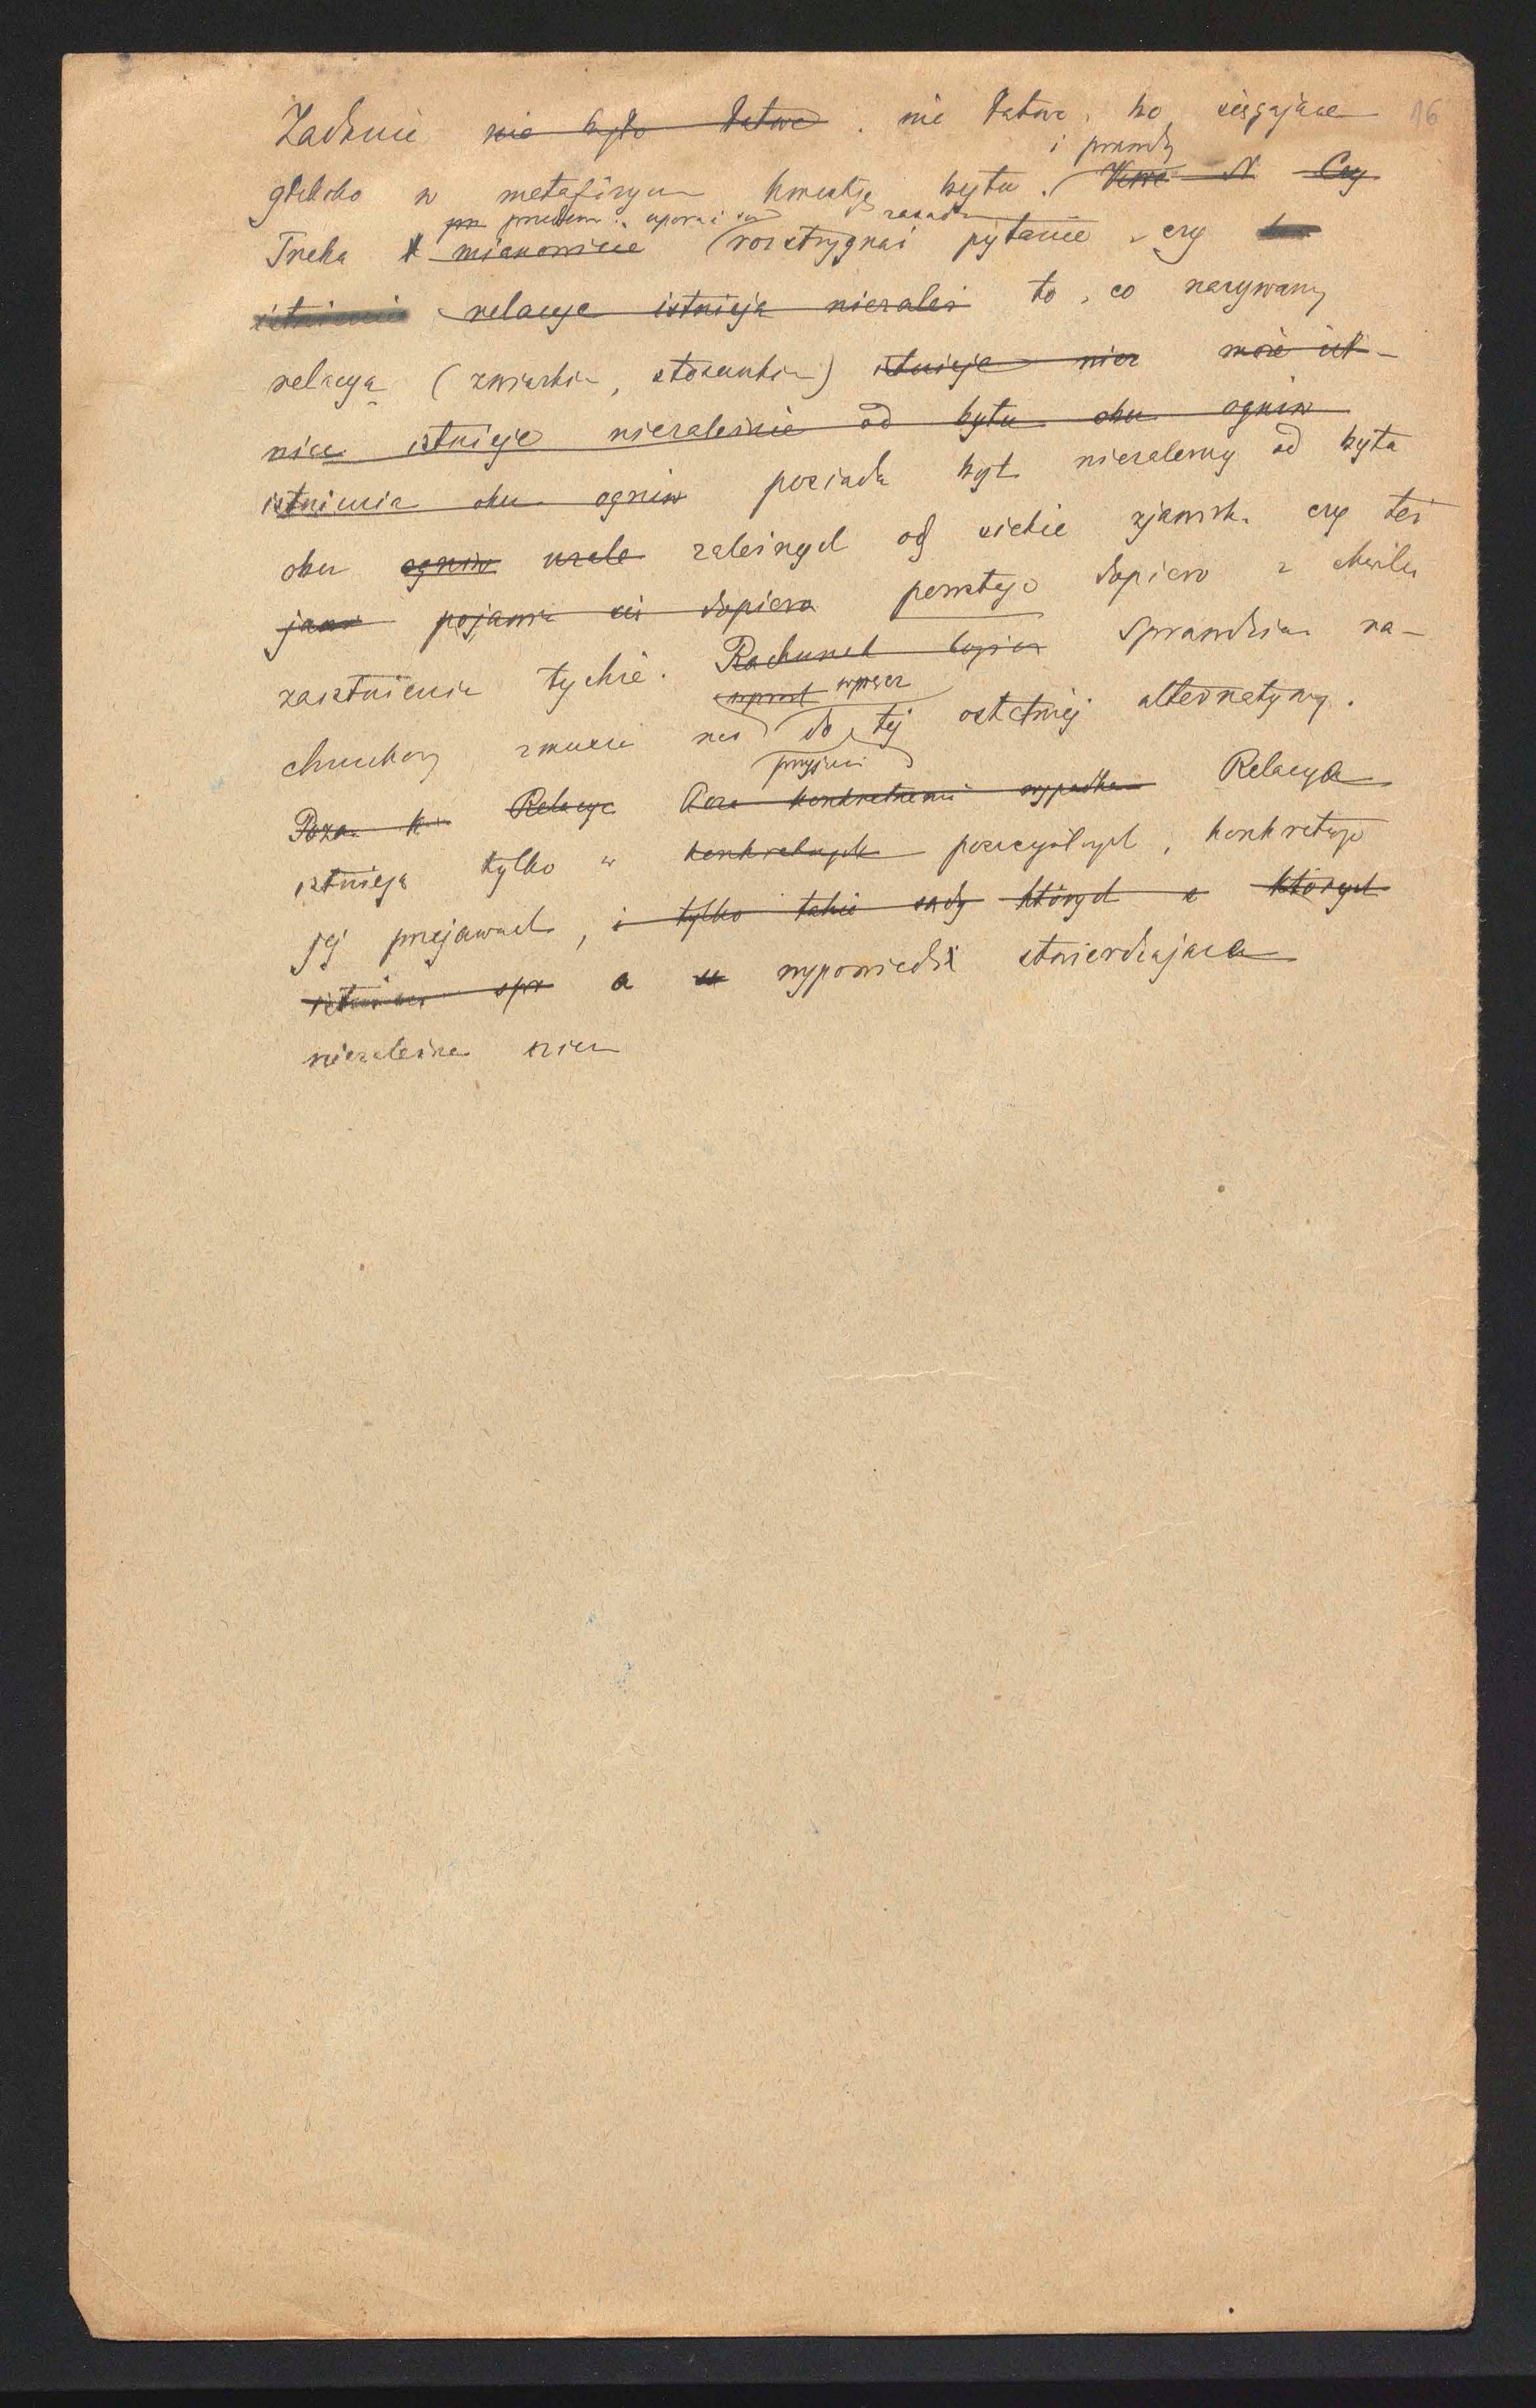 Zadanie nie było łatwe. nie łatwe, bo sięgające 16
i prawdy
głęboko w metafizyczn kwestję bytu. N Czy
przedtem uporać się zasadn
Trzeba mianowicie rozstrzygnąć pytanie, czy
istnienie relacye istnieją niezależ to, co nazywamy
relacyą (związkiem, stosunkiem) istnieje niez może ist-
nieć istnieje niezależnie od bytu obu ogniw
istnienia obu ogniw posiada byt niezależny od bytu
obu ogniw zależnych od siebie zjawisk, czy też
jaw pojawia się dopiero powstaje dopiero z chwilą
zaistnienia tychże. Rachunek logicz Sprawdzian ra-
wprost wprzez
chunkowy zmusza nas do tej ostatniej alternatywy.
przyjęcia
Poza k Relacye Poza konkretnemi wypadkam Relacya
istnieją tylko w konkretnych poszczególnych, konkretnego
jej przejawach, i tylko takie sądy których a których
istnien spr a wypowiedź stwierdzająca
niezależne